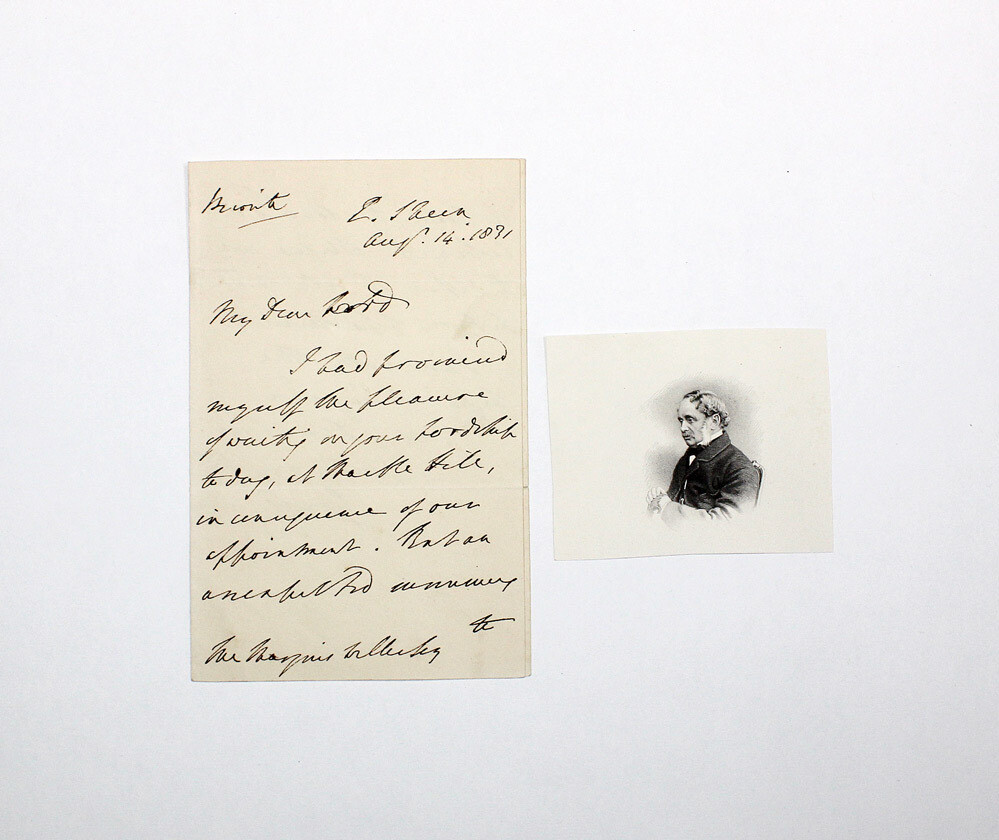 Private
E. Sheen
Augt. 14. 1831
My Dear Lord
I had promised
myself the pleasure
of waiting on your Lordship
to day, at Marble Hill,
in consequence of our
appointment. But an
unexpected summons
to
The Marquis Wellesley